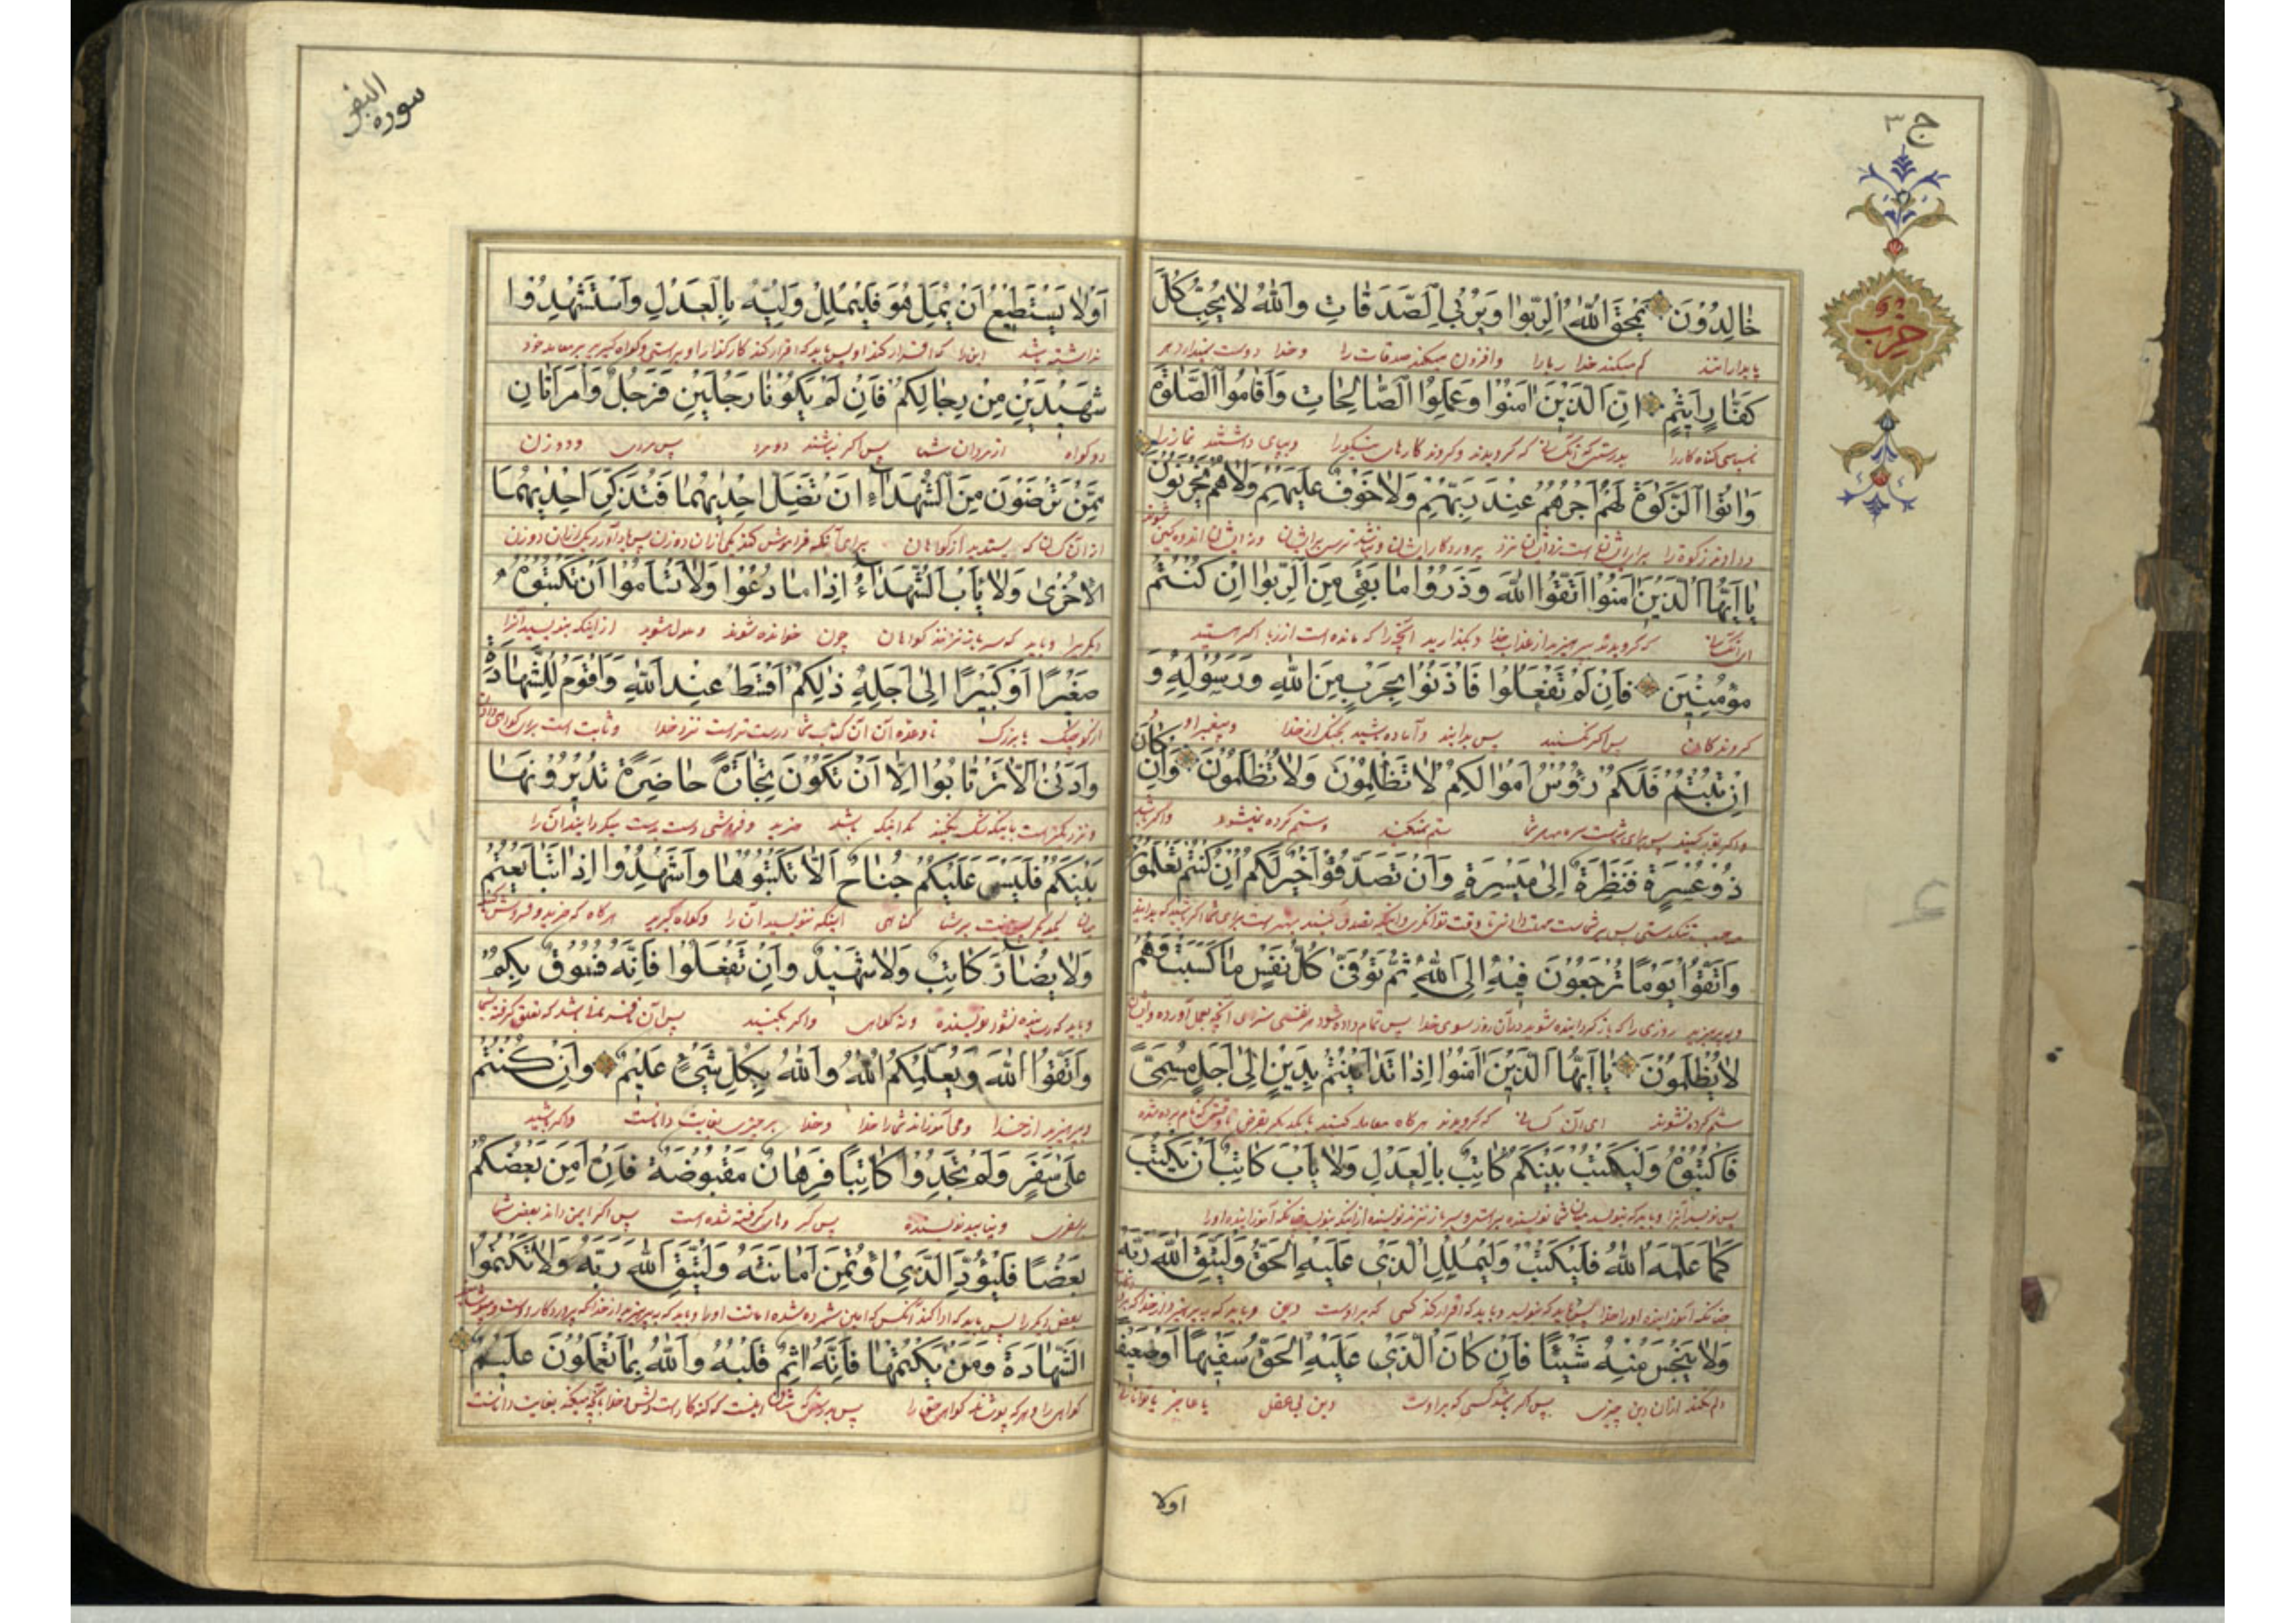 ج ٣
حزب
خٰالِدُوْنَ يَمْحَقُ اللّٰهُ الرِّبٰوا وَيُرْبِي الصَّدَقٰاتِ وَاللّٰهُ لٰا يُحِبُّ كُلَّ
پایدارانند کم میکند خدا ربا را وافزون میکند صدقات را وخدا دوست نمیدارد هر
كَفّٰارٍ اَثِيْمٍ اِنَّ الَّذِيْنَ اٰمَنُوْا وَعَمِلُوا الصّٰالِحٰاتِ وَاَقٰامُوا الصَّلٰوةَ
ناسپاسی کناه کار را بدرستیکه آنکسانی که کرویدند وکردند کارهای نیکو را وبپای داشتند نماز را
وَاٰتَوُا الزَّكٰوةَ لَهُمْ اَجْرُهُمْ عِنْدَ رَبِّهِمْ وَلٰا خَوْفٌ عَلَيْهِمْ وَلٰا هُمْ يَحْزَنُوْنَ
ودادند زکوة را نزد پروردکار ایشان ونباشد ترس بر ایشان ونه ایشان اندوهکین شوند
يٰا اَيُّهَا الَّذِيْنَ اٰمَنُوا اتَّقُوا اللّٰهَ وَذَرُوْا مٰا بَقِيَ مِنَ الرِّبٰوا اِنْ كُنْتُمْ
که کرویدند بپرهیزید از عذاب خدا وبکذارید آنچه را که مانده است از ربا اکر هستید
مُؤْمِنِيْنَ فَاِنْ لَمْ تَفْعَلُوْا فَأْذَنُوْا بِحَرْبٍ مِنَ اللّٰهِ وَرَسُوْلِهِ وَ
کروندکان پس اکر نکنید پس بدانید وآماده باشید بجنک از خدا وپیغمبر او
اِنْ تُبْتُمْ فَلَكُمْ رُؤُسُ اَمْوٰالِكُمْ لٰا تَظْلِمُوْنَ وَلٰا تُظْلَمُوْنَ وَاِنْ كٰانَ
واکر توبه کنید پس برای شماست ستم نمیکنید وستم کرده نمیشوید واکر باشد
ذُوْ عُسْرَةٍ فَنَظِرَةٌ اِلٰى مَيْسَرَةٍ وَاَنْ تَصَدَّقُوْا خَيْرٌ لَكُمْ اِنْ كُنْتُمْ تَعْلَمُوْنَ
تنکدستی پس بر شماست مهلت دادن تا وقت توانکری واینکه تصدق کنید بهتر است برای شما اکر باشید که بدانید
وَاتَّقُوْا يَوْمًا تُرْجَعُوْنَ فِيْهِ اِلَى اللّٰهِ ثُمَّ تُوَفّٰى كُلُّ نَفْسٍ مٰا كَسَبَتْ وَهُمْ
وبپرهیزید روزی را که باز کردانیده شوید در آن روز سوی خدا پس تمام داده شود هر نفسی سزای آنچه بعمل آورده وایشان
لٰا يُظْلَمُوْنَ يٰا اَيُّهَا الَّذِيْنَ اٰمَنُوْا اِذٰا تَدٰايَنْتُمْ بِدَيْنٍ اِلٰى اَجَلٍ مُسَمًّى
ستم کرده نشوند ای آن کسانی که کرویدند هرکاه معامله کنید با یکدیکر بقرض تا وقتی که نام برده شده
فَاكْتُبُوْهُ وَلْيَكْتُبْ بَيْنَكُمْ كٰاتِبٌ بِالْعَدْلِ وَلٰا يَأْبَ كٰاتِبٌ اَنْ يَكْتُبَ
پس بنویسید آنرا وباید که بنویسد میان شما نویسنده براستی وسر باز نزند نویسنده از اینکه بنویسد چنانکه آموزانیده او را
كَمٰا عَلَّمَهُ اللّٰهُ فَلْيَكْتُبْ وَلْيُمْلِلِ الَّذِيْ عَلَيْهِ الْحَقُّ وَلْيَتَّقِ اللّٰهَ رَبَّهُ
چنانکه آموزانیده او را خدا پس باید که بنویسد وباید که اقرار کند کسی که بر اوست دین وباید که بپرهیزد از خدا
وَلٰا يَبْخَسْ مِنْهُ شَيْئًا فَاِنْ كٰانَ الَّذِيْ عَلَيْهِ الْحَقُّ سَفِيْهًا اَوْ ضَعِيْفًا
وکم نکند از آن دین چیزی پس اکر باشد کسی که بر اوست دین بی عقل یا عاجز یا توانائی
اولا
سورة البقر
اَوْ لٰا يَسْتَطِيْعُ اَنْ يُمِلَّ هُوَ فَلْيُمْلِلْ وَلِيُّهُ بِالْعَدْلِ وَاسْتَشْهِدُوْا
نداشته باشد که اقرار کند او پس باید که اقرار کند کارکذار او براستی وکواه کیرید بر معامله خود
شَهِيْدَيْنِ مِنْ رِجٰالِكُمْ فَاِنْ لَمْ يَكُوْنٰا رَجُلَيْنِ فَرَجُلٌ وَامْرَاَتٰانِ
دو کواه از مردان شما پس اکر نباشند دو مرد پس مردی ودو زن
مِمَّنْ تَرْضَوْنَ مِنَ الشُّهَدٰاءِ اَنْ تَضِلَّ اِحْدٰيهُمٰا فَتُذَكِّرَ اِحْدٰيهُمَا
از آن کسانی که بپسندید از کواهان برای آنکه فراموش کند یکی از آن دو زن پس یاد آورد یکی از آن دو زن
الْاُخْرٰى وَلٰا يَأْبَ الشُّهَدٰاءُ اِذٰا مٰا دُعُوْا وَلٰا تَسْاَمُوْا اَنْ تَكْتُبُوْهُ
دیکری را وباید که سر باز نزنند کواهان چون خوانده شوند وملول مشوید از اینکه بنویسید آنرا
صَغِيْرًا اَوْ كَبِيْرًا اِلٰى اَجَلِهِ ذٰلِكُمْ اَقْسَطُ عِنْدَ اللّٰهِ وَاَقْوَمُ لِلشَّهٰادَةِ
کوچک یا بزرک تا وعده آن درست تر است نزد خدا وثابت است برای کواهی دادن
وَاَدْنٰى اَلّٰا تَرْتٰابُوْا اِلّٰا اَنْ تَكُوْنَ تِجٰارَةً حٰاضِرَةً تُدِيْرُوْنَهٰا
ونزدیکتر است باینکه شک نکنید مکر اینکه باشد خرید وفروشی دست بدست میکردانید آن را
بَيْنَكُمْ فَلَيْسَ عَلَيْكُمْ جُنٰاحٌ اَلّٰا تَكْتُبُوْهٰا وَاَشْهِدُوْا اِذٰا تَبٰايَعْتُمْ
میان یکدیکر پس نیست بر شما کناهی اینکه ننویسید آن را وکواه کیرید هرکاه که خرید وفروش کنید
وَلٰا يُضٰارَّ كٰاتِبٌ وَلٰا شَهِيْدٌ وَاِنْ تَفْعَلُوْا فَاِنَّهُ فُسُوْقٌ بِكُمْ
وباید که رنجانیده نشود نویسنده ونه کواهی واکر بکنید پس آن
وَاتَّقُوا اللّٰهَ وَيُعَلِّمُكُمُ اللّٰهُ وَاللّٰهُ بِكُلِّ شَيْءٍ عَلِيْمٌ وَاِنْ كُنْتُمْ
وبپرهیزید از خدا ومی آموزاند شما را خدا وخدا بهر چیزی بغایت داناست واکر باشید
عَلٰى سَفَرٍ وَلَمْ تَجِدُوْا كٰاتِبًا فَرِهٰانٌ مَقْبُوْضَةٌ فَاِنْ اَمِنَ بَعْضُكُمْ
بر سفری ونیابید نویسنده پس کروهای کرفته شده است پس اکر ایمن داند بعضی شما
بَعْضًا فَلْيُؤَدِّ الَّذِي اؤْتُمِنَ اَمٰانَتَهُ وَلْيَتَّقِ اللّٰهَ رَبَّهُ وَلٰا تَكْتُمُوا
بعض دیکر را پس باید که ادا کند آنکس که امین شمرده شده امانت او را وباید که بپرهیزد از خدا که پروردکار اوست ومپوشانید
الشَّهٰادَةَ وَمَنْ يَكْتُمْهٰا فَاِنَّهُ اٰثِمٌ قَلْبُهُ وَاللّٰهُ بِمٰا تَعْمَلُوْنَ عَلِيْمٌ
کواهی را وهر که پوشاند کواهی حق را پس بدرستیکه کنه کار است دلش وخدا بآنچه میکنید بغایت داناست